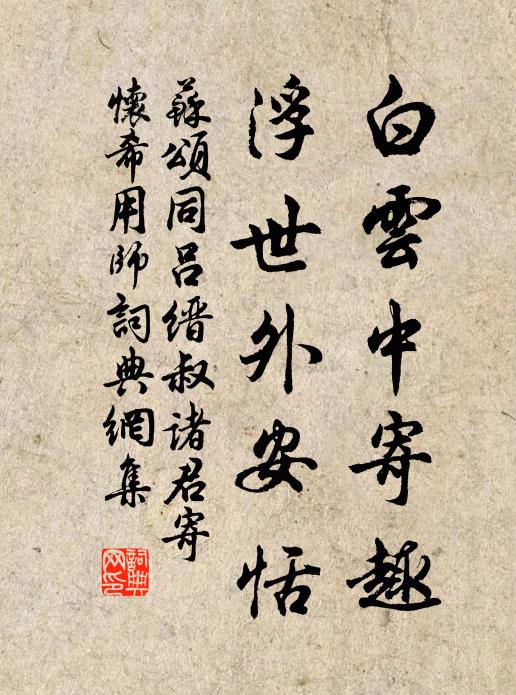 白雲中寄趣
浮世外安恬
蘇頌同呂缙叔諸君寄
懷希用師詞典網集
詞典网印